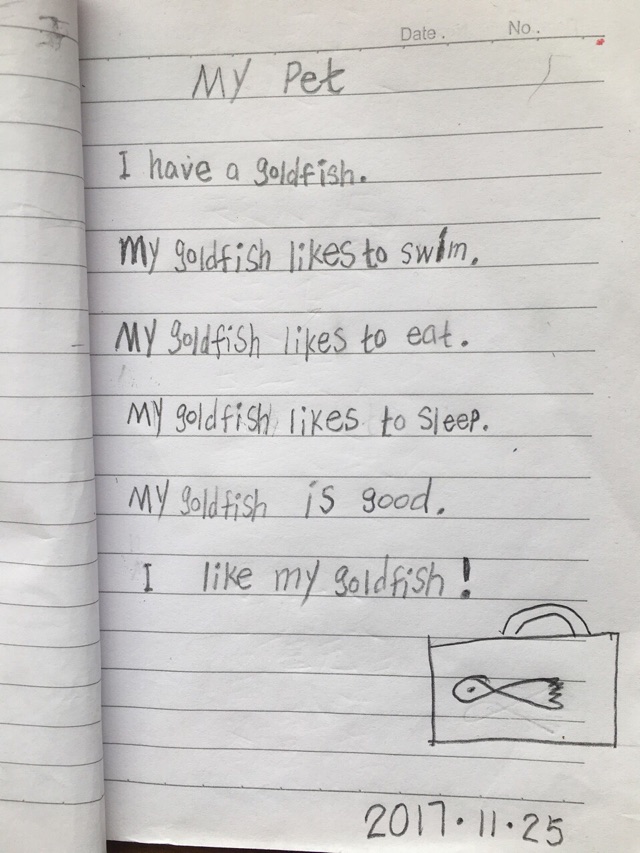 Date. No.
My Pet
I have a goldfish.
My goldfish likes to swim.
My goldfish likes to eat.
My goldfish likes to sleep.
My goldfish is good.
I like my goldfish!
2017.11.25